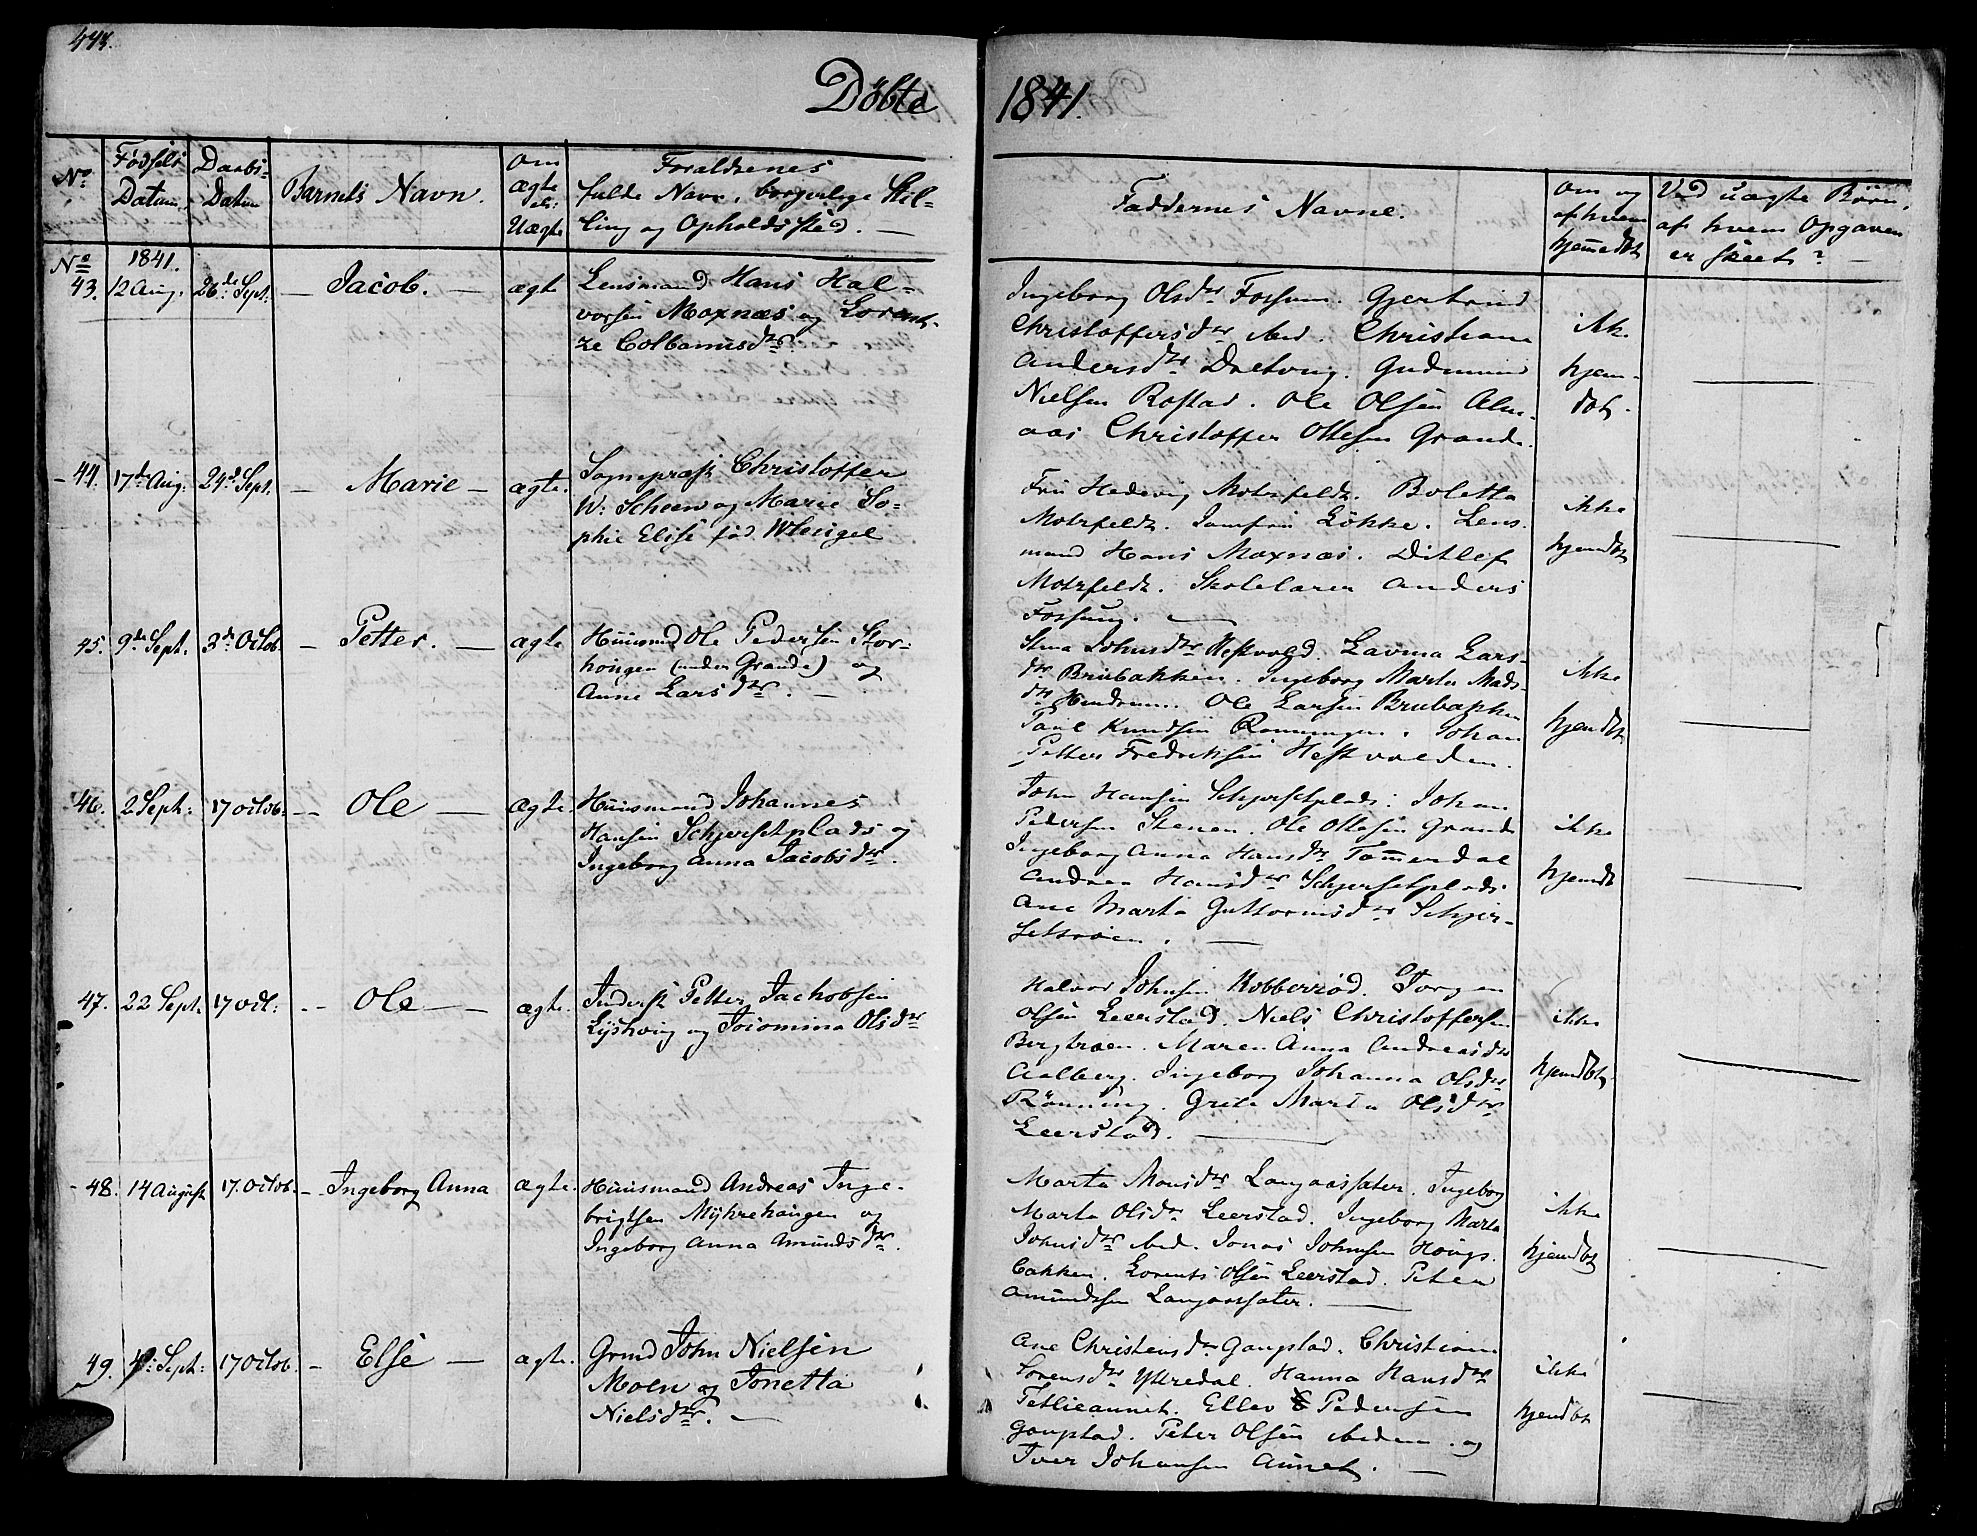 Döbte 1841.
No
Fødsels Datum.
Daabs-Datum
Barnets Navn.
Om ægte el: Uægte
Forældrenes fulde Navn, borgerlige Stilling og Opholdssted.
Faddernes Navne.
Om og af hvem hjemedøbt
Ved uægte Børn, af hvem Opgaven er skeet?
No 1841.
43. 12 Aug. 26de Sept. — Jacob. — ægte
Lensmand Hans Hal-
vorsen Moxnæs og Lorent-
ze Colbanusdtr.
Ingeborg Olsdtr Fossum. Gjertrud
Christoffersdtr ibid. Christiane
Andersdtr Daltvug. Gudmund
Nielsen Rostad. Ole Olsen Alm-
aas Christoffer Ottesen Grande.
ikke
hjem-
døbt.
44. 17de Aug. 24de Sept. — Marie — ægte.
Sognepræst Christoffer
W: Scheen og Marie So-
phie Elise fød Wleugel
Fru Hedevig Motzfeldt. Boletta
Motzfeldt. Jomfru Løkke. Lens-
mand Hans Moxnæs. Ditlef
Motzfeldt. Skolelærer Anders
Forsung. —
ikke
hjemdøbt
45. 9de Sept. 3de Octob. — Petter. — ægte
Huusmd Ole Pedersen Stor-
hougen (under Grande) og
Anne Larsdtr. —
Stina Johnsdtr Hestvold. Lavina Lars-
dtr Brubakken. Ingeborg Marta Mads-
dtr Hindrum. Ole Larsen Brubakken
Paul Knudsen Rønningen. Johan
Petter Fredriksen Hestvolden.
ikke
hjemdøbt
46. 2 Sept: 17 Octob: — Ole — ægte.
Huusmand Johannes
Hansen Schjersetplads og
Ingeborg Anna Jacobsdtr.
John Hansen Schjersetplads. Johan
Pedersen Stenen. Ole Ottesen Grande
Ingeborg Anna Hansdtr Tømmerdal
Andrea Hansdtr Schjersetplads
Ane Marta Guttormsdtr Schjer-
setrøen. —
ikke
hjemdøbt
47. 22 Sept. 17 Oct: — Ole — ægte.
Inderst Petter Jachobsen
Lystvig og Joromina Olsdtr
Halvor Johnsen Kobberrød. Jørgen
Olsen Leerstad. Niels Christoffersen
Bergtrøen. Maren Anna Andreasdtr
Aalberg. Ingeborg Johanna Olsdtr
Rönning. Grete Marta Olsdtr
Leerstad. —
ikke
hjemdøbt
48. 14 August 17. Octob. — Ingeborg Anna ægte.
Huusmand Andreas Inge-
brigtsen Myhrehaugen og
Ingeborg Anna Amundsdtr.
Marta Monsdtr Langaassæter. Ingeborg
Marta Olsdtr Leerstad. Ingeborg Marta
Johnsdtr ibid. Jonas Johnsen Hougs-
bakken. Lorents Olsen Leerstad. Peter
Amundsen Langaassæter. —
ikke
hjemdøbt
49. Sept: 17 Octob. — Else — ægte.
Grmd John Nielsen
Moen og Tonetta
Nielsdtr. —
Ane Christensdtr Gaupstad. Christiane
Sørensdtr Yttredal. Hanna Hansdtr
Tetlieaunet. Ellev Pedersen
Gaupstad. Peter Olsen ibidem. og
Iver Johansen Aunet. —
ikke
hjemdøbt